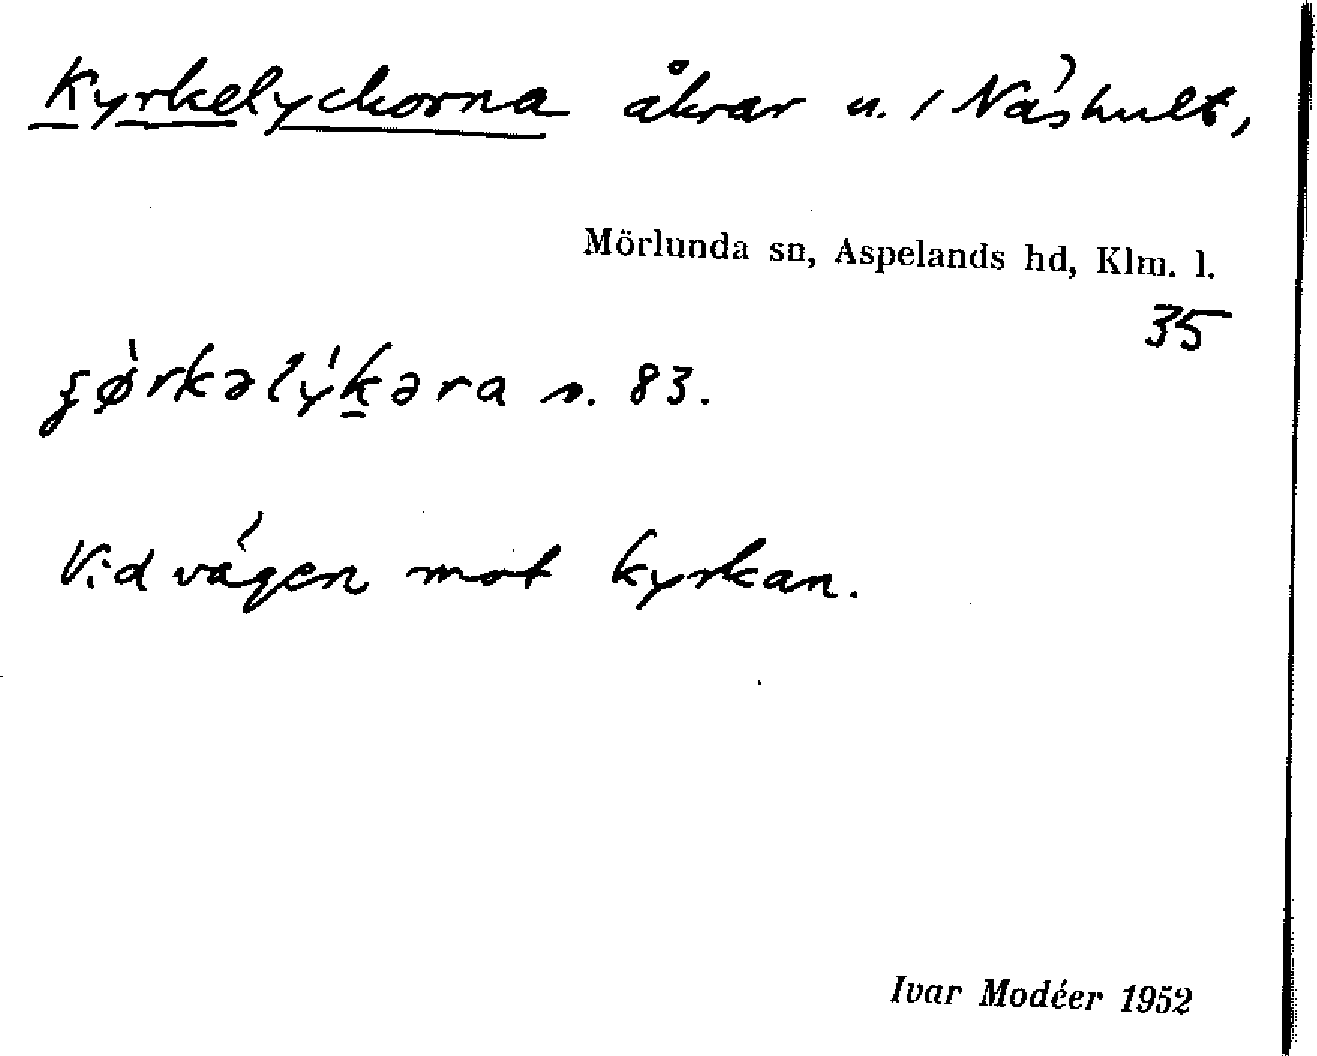 Kyrkelyckorna åkrar u. / Näshult,
Mörlunda sn, Aspelands hd, Klm. l.
35
s. 83.
Vid vägen mot kyrkan.
Ivar Modéer 1952